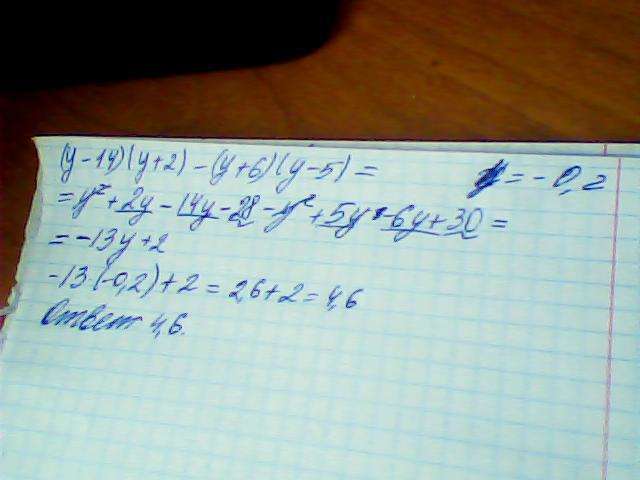 (y-14)(y+2)-(y+6)(y-5)= y=-0,2
=y²+2y-14y-28-y²+5y-6y+30=
=-13y+2
-13·(-0,2)+2=2,6+2=4,6
Ответ 4,6.